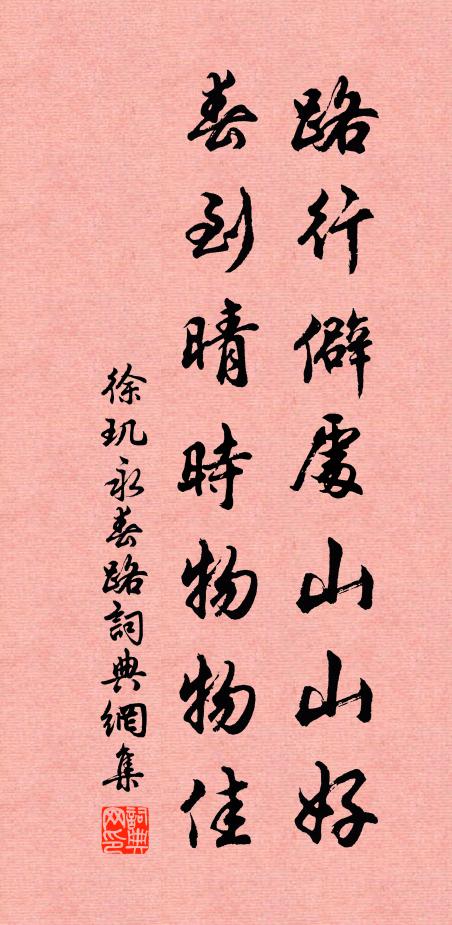 路行僻處山山好
春到晴時物物佳
徐玑永春路詞典網集
詞典网印